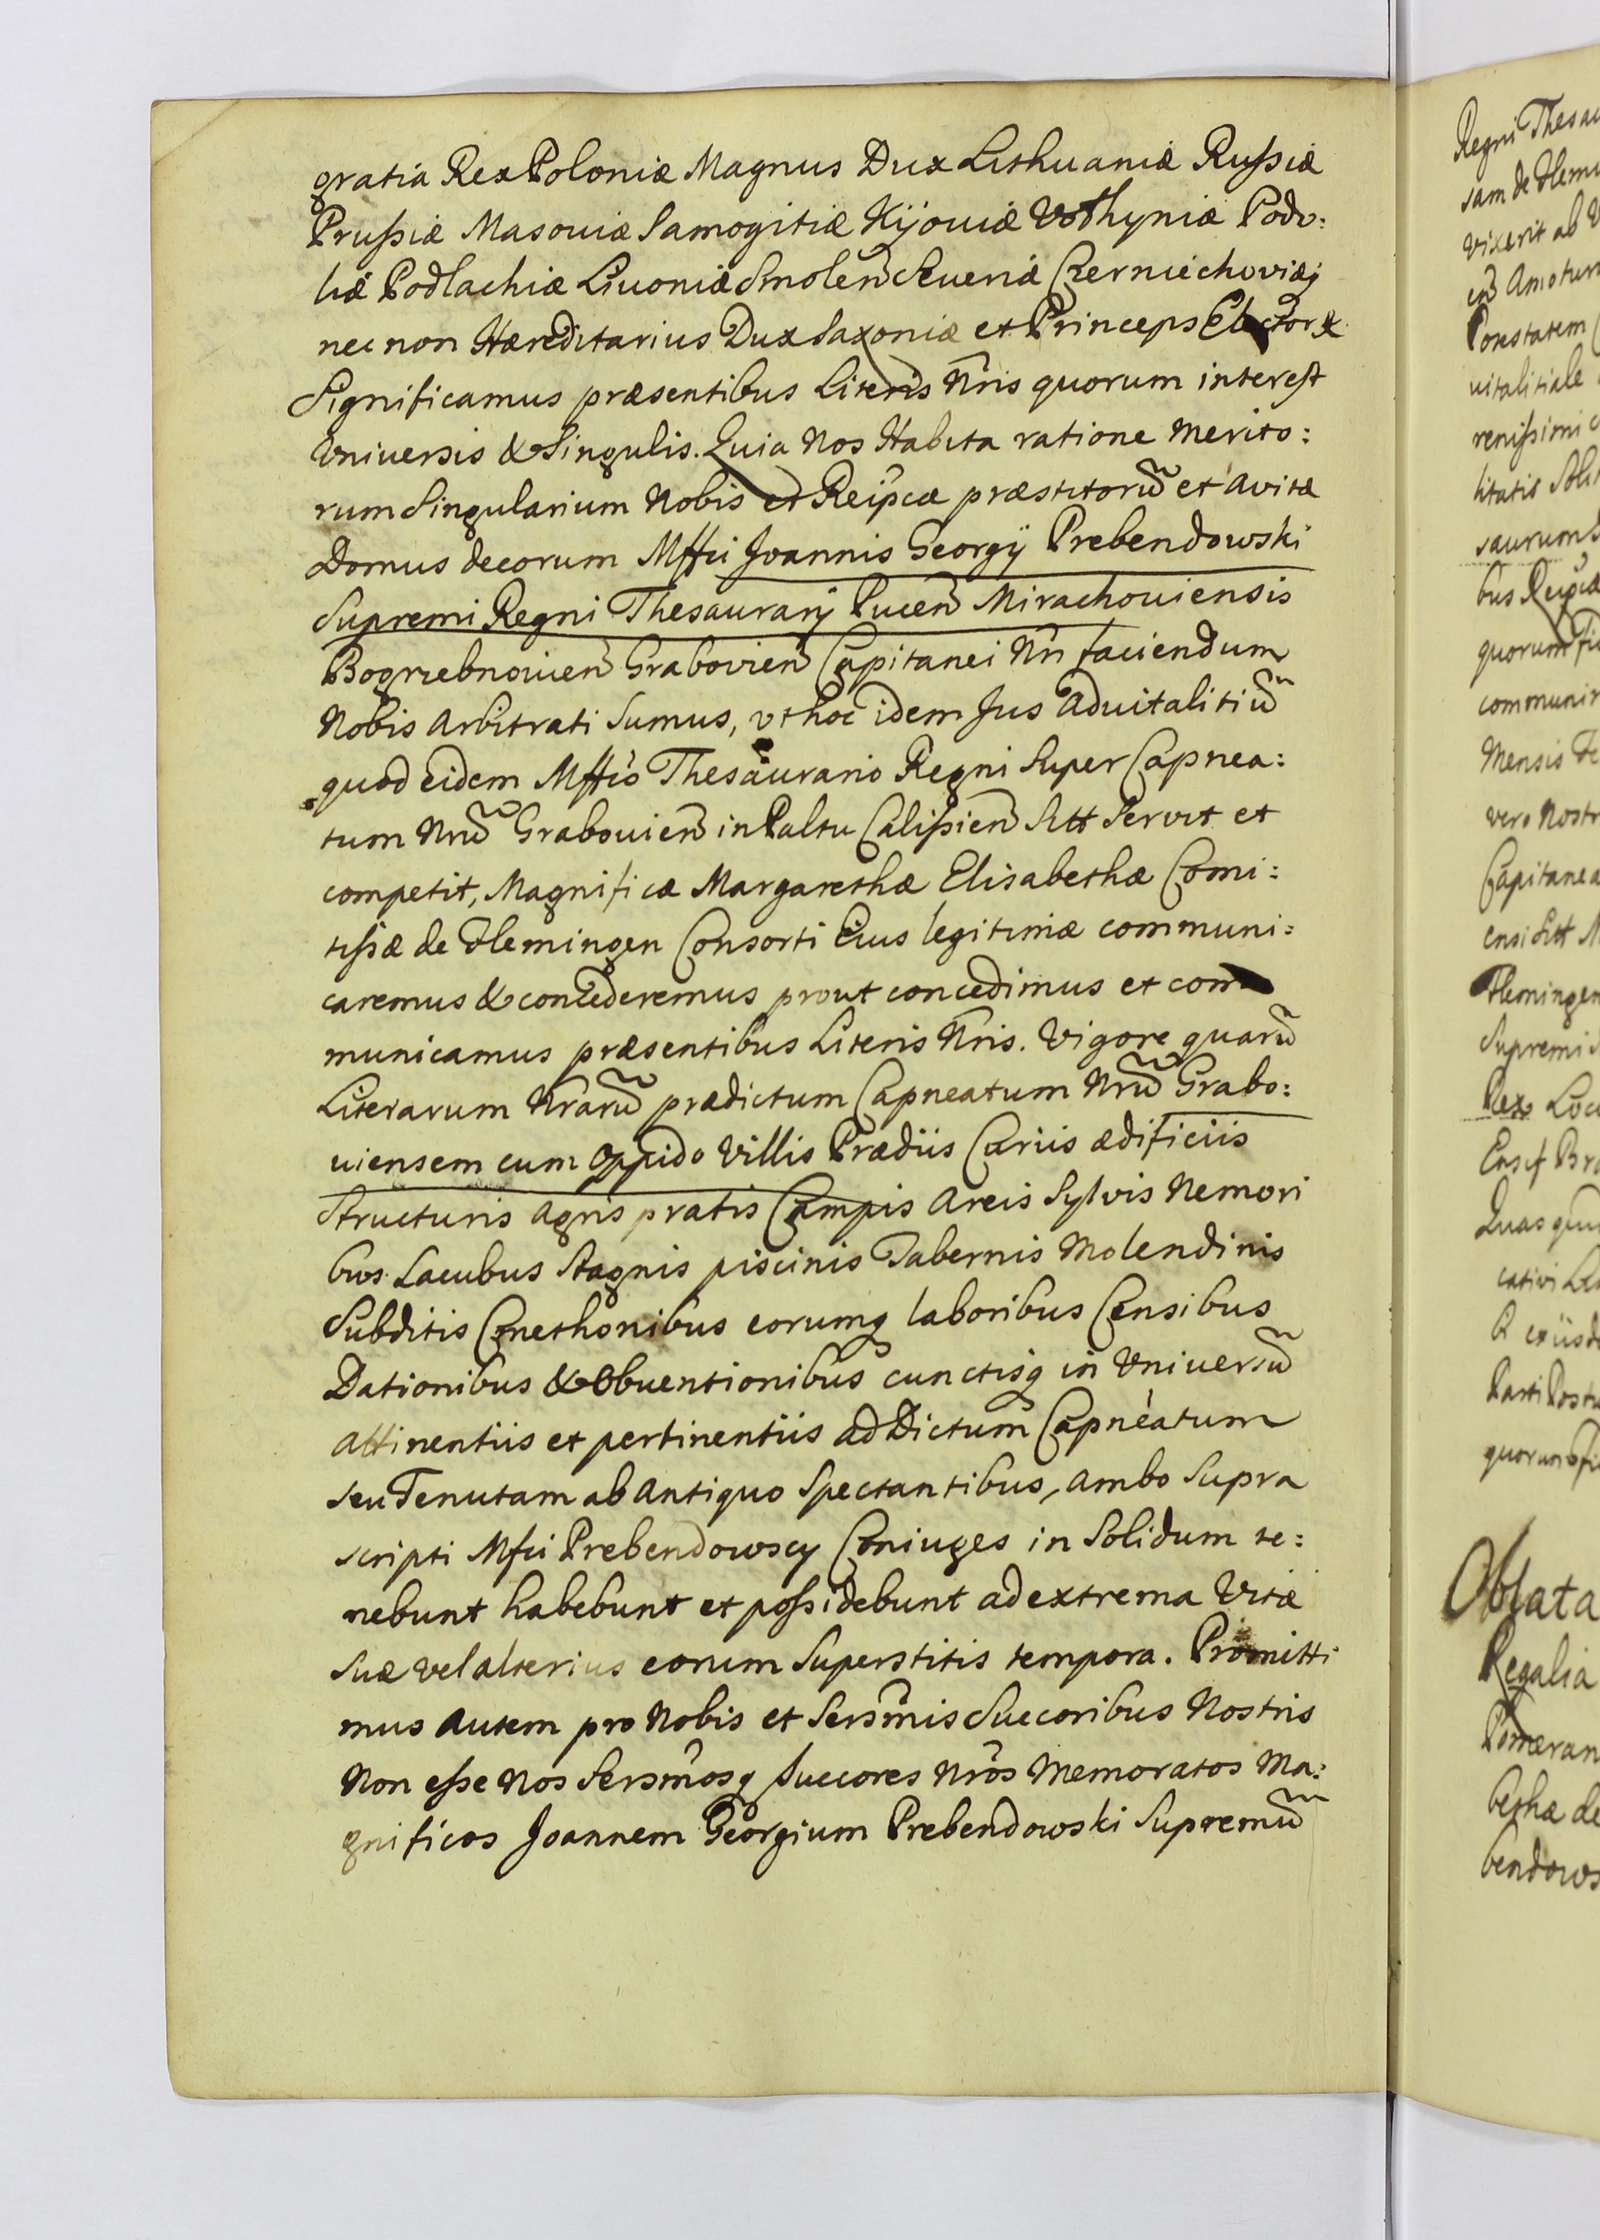 gratia Rex Poloniæ Magnus Dux Lithuaniæ Russiæ
Prussiæ Masoviæ Samogitiæ Kijoviæ Volhyniæ Podo:
liæ Podlachiæ Livoniæ Smolen̄ Severiæ Czerniechoviæq
nec non Hæreditarius Dux Saxoniæ et Princeps Elector &
Significamus præsentibus Literis Nr̃is quorum interest
Universis & Singulis. Quia Nos Habita ratione Merito:
rum Singularium Nobis et Reipcæ præstitorũ et Avitæ
Domus decorum Mffci Joannis Georgÿ Prebendowski
Supremi Regni Thesaurarij Pucen̄ Mirachoviensis
Pogrzebnovien̄ Grabovien̄ Capitanei Nr̃i faciendum
Nobis Arbitrati Sumus, vt hoc idem Jus Advitalitiũ
quod eidem Mffco Thesaurario Regni Super Capnea:
tum Nrũ Grabouien̄ in Paltu Calissien̄ Sitt Servit et
competit, Magnificæ Margarethæ Elisabethæ Comi:
tissæ de Flemingen Consorti Eius legitimæ communi:
caremus & concederemus prout concedimus et com
municamus præsentibus Literis Nr̃is. Vigore quarũ
Literarum Nrarũ prædictum Capneatum Nrũ Grabo:
uiensem cum Oppido Villis Prædiis Curiis ædificiis
Structuris Agris pratis Campis Areis Sylvis Nemori
bus Lacubus Stagnis piscinis Tabernis Molendinis
Subditis Cmethonibus eorumq laboribus Censibus
Dationibus & Obventionibus cunctisq in Universũ
attinentiis et pertinentiis ad Dictum Capneatum
seu Tenutam ab Antiquo Spectantibus, ambo Supra
scripti Mfci Prebendowscy Coniuges in Solidum te:
nebunt habebunt et possidebunt ad extrema Vitæ
suæ vel alterius eorum Superstitis tempora. Promitti
mus Autem pro Nobis et Sers̃mis Succoribus Nostris
Non esse Nos Sersm̃osq Succores Nr̃os Memoratos Ma:
gnificos Joannem Georgium Prebendowski Supremũ
Regni Thesau
sam de Flemi
vixerit ab
Amotur
Potestatem
vitalitiale
renissimi
litatis
saurum
bus Reipcæ
quorum fi
communi
Mensis
vero Nostr
Capitanea
ensi Sitt M
Flemingen
Supremi
Rex Loc
Ensif Br
Quas
cativi
Parti Post
quorum fi
Oblata
Regalia
Pomeran
bethæ de
bendows